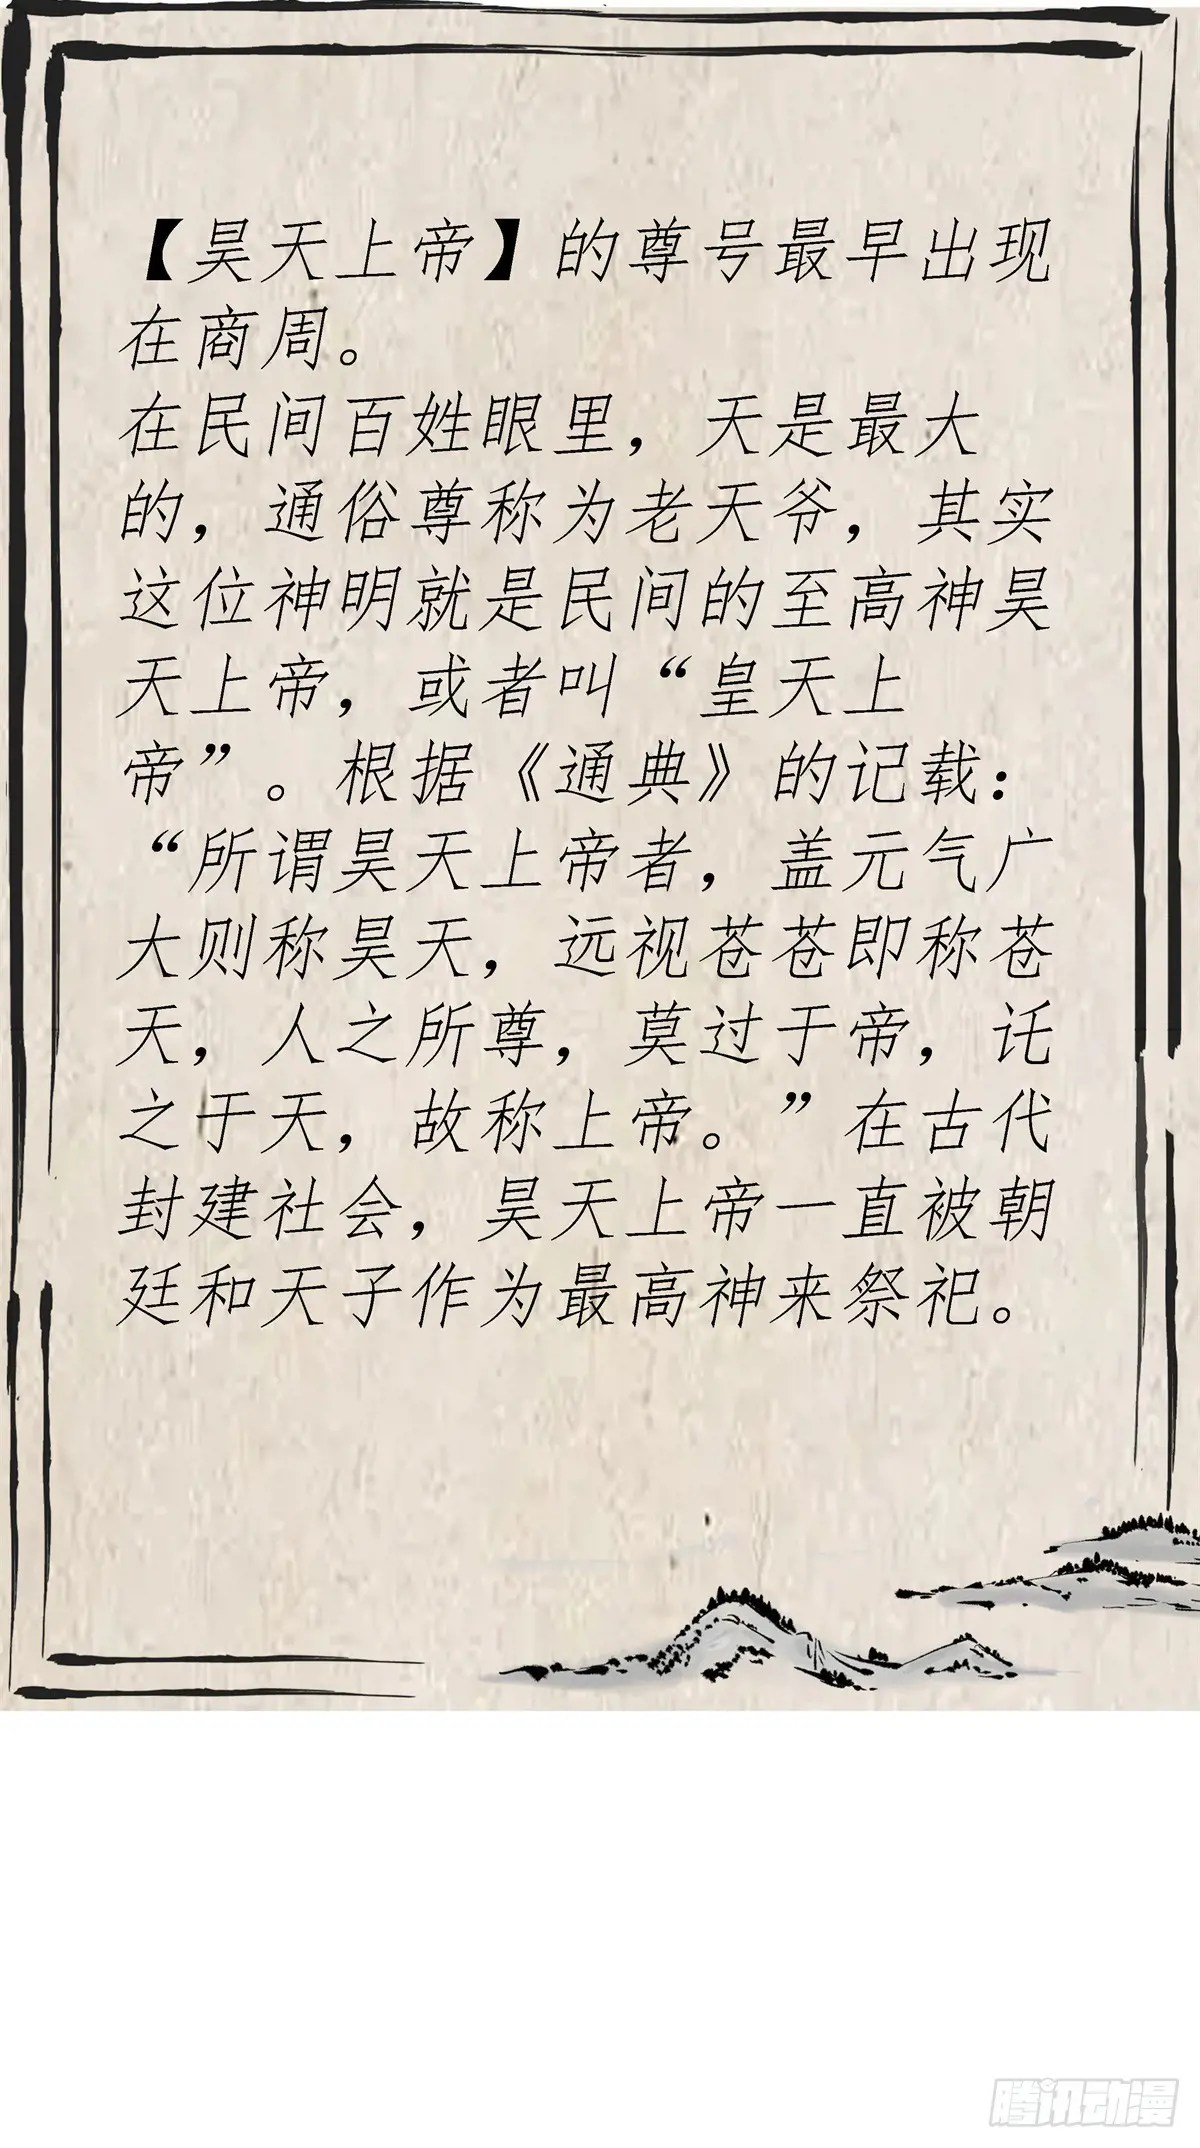 【昊天上帝】的尊号最早出现
在商周。
在民间百姓眼里，天是最大
的，通俗尊称为老天爷，其实
这位神明就是民间的至高神昊
天上帝，或者叫“皇天上
帝”。根据《通典》的记载：
“所谓昊天上帝者，盖元气广
大则称昊天，远视苍苍即称苍
天，人之所尊，莫过于帝，讬
之于天，故称上帝。”在古代
封建社会，昊天上帝一直被朝
廷和天子作为最高神来祭祀。
腾讯动漫